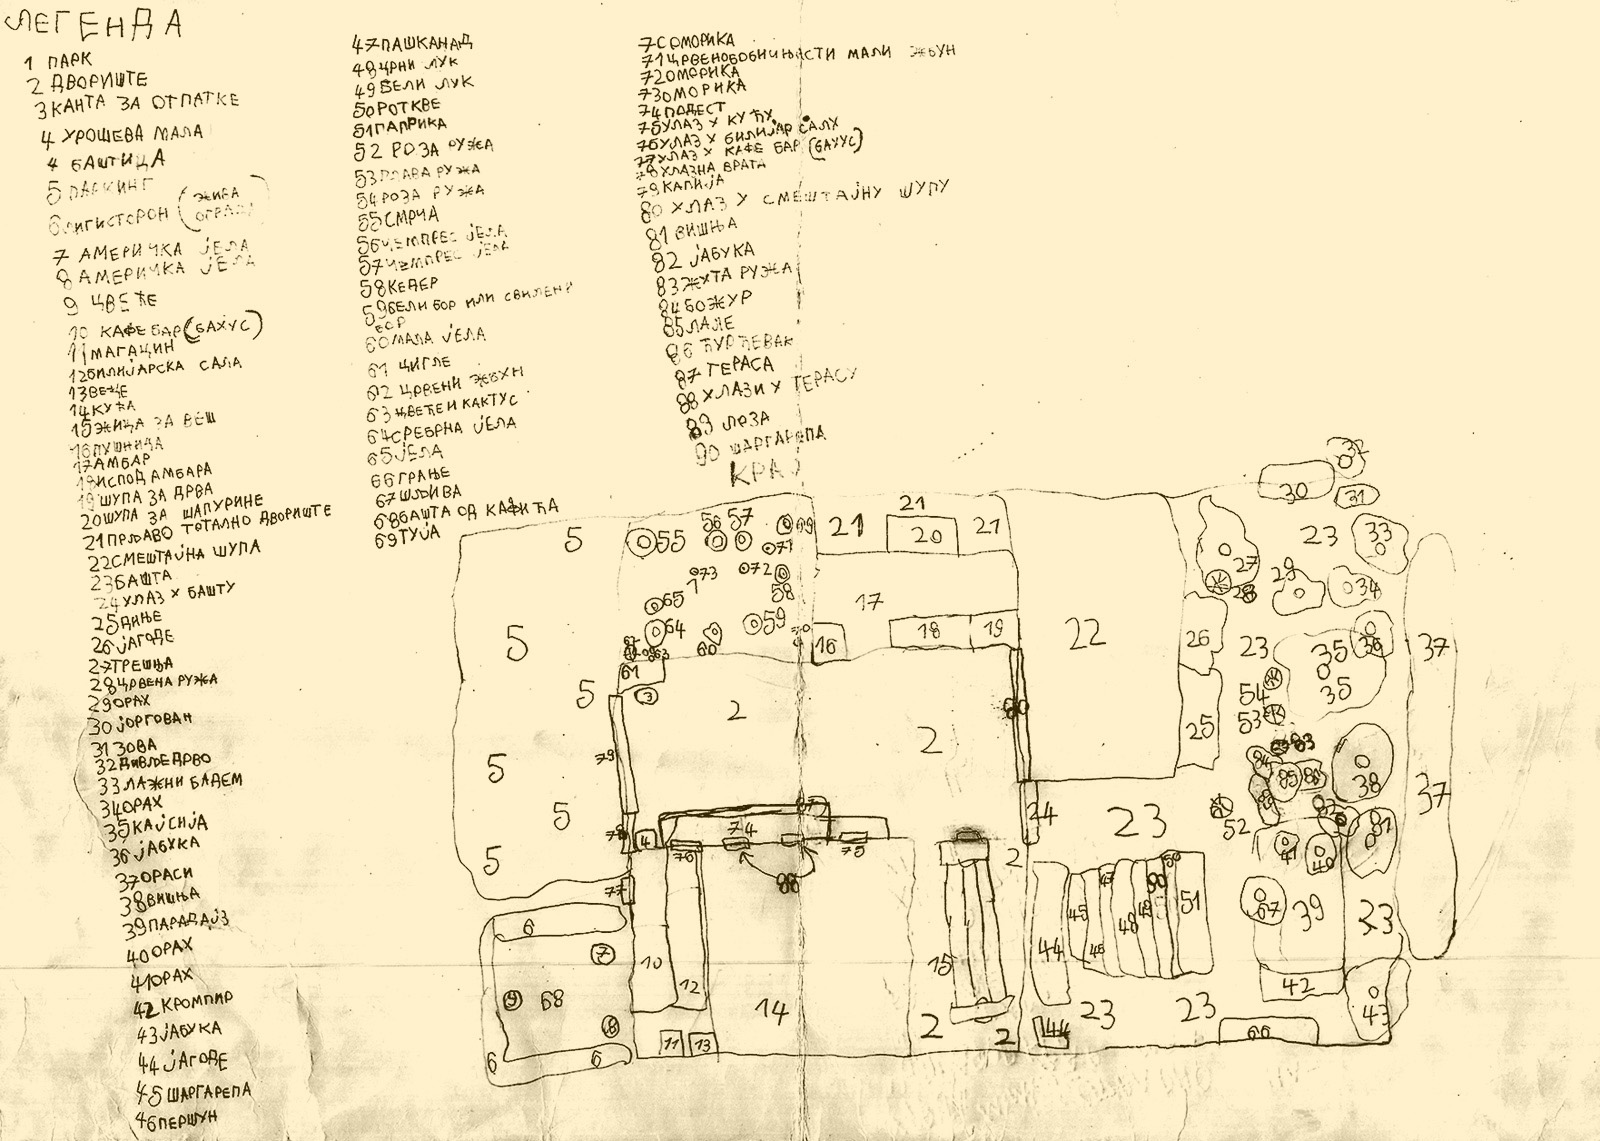 ЛЕГЕНДА
1 ПАРК
2 ДВОРИШТЕ
3 КАНТА ЗА ОТПАТКЕ
4 УРОШЕВА МАЛА
4 БАШТИЦА
5 ПАРКИНГ
6 ЛИГИСТОРОН (ЖИВА
ОГРАДА)
7 АМЕРИЧКА ЈЕЛА
8 АМЕРИЧКА ЈЕЛА
9 ЦВЕЋЕ
10 КАФЕ БАР (БАХУС)
11 МАГАЦИН
12 БИЛИЈАРСКА САЛА
13 ВЕЦЕ
14 КУЋА
15 ЖИЦА ЗА ВЕШ
16 ПУШНИЦА
17 АМБАР
18 ИСПОД АМБАРА
19 ШУПА ЗА ДРВА
20 ШУПА ЗА ШАПУРИНЕ
21 ПРЉАВО ТОТАЛНО ДВОРИШТЕ
22 СМЕШТАЈНА ШУПА
23 БАШТА
24 УЛАЗ У БАШТУ
25 ДИЊЕ
26 ЈАГОДЕ
27 ТРЕШЊА
28 ЦРВЕНА РУЖА
29 ОРАХ
30 ЈОРГОВАН
31 ЗОВА
32 ДИВЉЕ ДРВО
33 ЛАЖНИ БАДЕМ
34 ОРАХ
35 КАЈСИЈА
36 ЈАБУКА
37 ОРАСИ
38 ВИШЊА
39 ПАРАДАЈЗ
40 ОРАХ
41 ОРАХ
42 КРОМПИР
43 ЈАБУКА
44 ЈАГОДЕ
45 ШАРГАРЕПА
46 ПЕРШУН
47 ПАШКАНАД
48 ЦРНИ ЛУК
49 БЕЛИ ЛУК
50 РОТКВЕ
51 ПАПРИКА
52 РОЗА РУЖА
53 ПЛАВА РУЖА
54 РОЗА РУЖА
55 СМРЧА
56 ЧЕМПРЕС ЈЕЛА
57 ЧЕМПРЕС ЈЕЛА
58 КЕДЕР
59 БЕЛИ БОР ИЛИ СВИЛЕНИ
БОР
60 МАЛА ЈЕЛА
61 ЦИГЛЕ
62 ЦРВЕНИ ЖБУН
63 ЦВЕЋЕ И КАКТУС
64 СРЕБРНА ЈЕЛА
65 ЈЕЛА
66 ГРАЊЕ
67 ШЉИВА
68 БАШТА ОД КАФИЋА
69 ТУЈА
7С ОМОРИКА
71 ЦРВЕНОБОБИЧЊАСТИ МАЛИ ЖБУН
72 ОМОРИКА
73 ОМОРИКА
74 ПОДЕСТ
75 УЛАЗ У КУЋУ
76 УЛАЗ У БИЛИЈАР САЛУ
77 УЛАЗ У КАФЕ БАР (БАХУС)
78 УЛАЗНА ВРАТА
79 КАПИЈА
80 УЛАЗ У СМЕШТАЈНУ ШУПУ
81 ВИШЊА
82 ЈАБУКА
83 ЖУТА РУЖА
84 БОЖУР
85 ЛАЛЕ
86 ЂУРЂЕВАК
87 ТЕРАСА
88 УЛАЗИ У ТЕРАСУ
89 ЛОЗА
90 ШАРГАРЕПА
КРАЈ
32
30
31
21
21
20
21
5
55
56
57
69
71
23
33
73
72
58
1
17
27
28
29
34
65
64
60
59
16
18
19
22
26
23
35
36
37
5
63
61
3
5
2
2
80
54
53
35
25
79
5
83
84
85
86
38
37
5
87
74
24
23
52
82
81
78
4
76
75
2
5
88
41
40
77
45
47
48
49
90
50
51
67
39
23
6
7
10
12
15
44
46
42
9
68
8
14
2
2
44
23
23
66
43
6
6
11
13